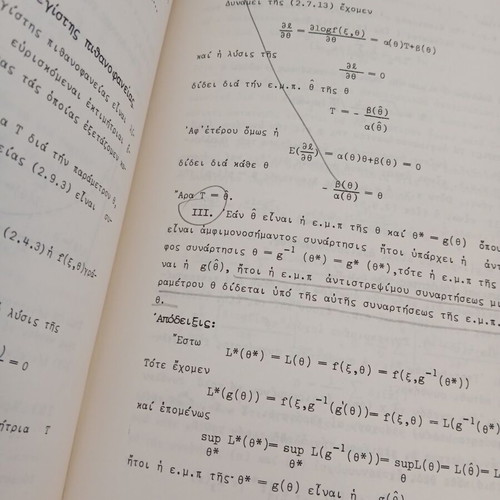 γίστης πιθανοφανείας
γίστης πιθανοφανείας εἶναι
εὑρισκόμεναι ἐκτιμήτριαι
ας τάς ὁποίας ἐξετάζομεν
α Τ διά τήν παράμετρον θ,
είας (2.9.3) εἶναι
(2.4.3) ἡ f(ξ,θ)γρά-
λύσις τῆς
= 0
ήτρια Τ
δυνάμει τῆς (2.7.13) ἔχομεν
∂ℓ/∂θ = ∂logf(ξ,θ)/∂θ = α(θ)Τ+β(θ)
καί ἡ λύσις τῆς
∂ℓ/∂θ = 0
δίδει διά τήν ε.μ.π. θ̂ τῆς θ
Τ = - β(θ̂)/α(θ̂)
Ἀφ'ἑτέρου ὅμως ἡ
Ε(∂ℓ/∂θ) = α(θ)θ+β(θ) = 0
δίδει διά κάθε θ
- β(θ)/α(θ) = θ
Ἄρα Τ = θ̂.
III. Ἐάν θ̂ εἶναι ἡ ε.μ.π τῆς θ καί θ* = g(θ) ὅπου
εἶναι ἀμφιμονοσήμαντος συνάρτησις ἤτοι ὑπάρχει ἡ ἀντ
φος συνάρτησις θ = g⁻¹ (θ*) = g* (θ*),τότε ἡ ε.μ.π τῆς
ναι ἡ g(θ̂), ἤτοι ἡ ε.μ.π ἀντιστρεψίμου συναρτήσεως μι
ραμέτρου θ δίδεται ὑπό τῆς αὐτῆς συναρτήσεως τῆς ε.μ.π.
θ.
Ἀπόδειξις:
Ἔστω
L*(θ*) = L(θ) = f(ξ,θ) = f(ξ,g⁻¹(θ*))
Τότε ἔχομεν
L*(g(θ)) = f(ξ,g⁻¹(g(θ))= f(ξ,θ) = L(g⁻¹(θ*)
καί ἑπομένως
sup L*(θ*)= sup L(g⁻¹(θ*))= supL(θ)= L(θ̂)= L
θ* θ* θ
ἤτοι ἡ ε.μ.π τῆς θ* = g(θ) εἶναι ἡ g(θ̂)